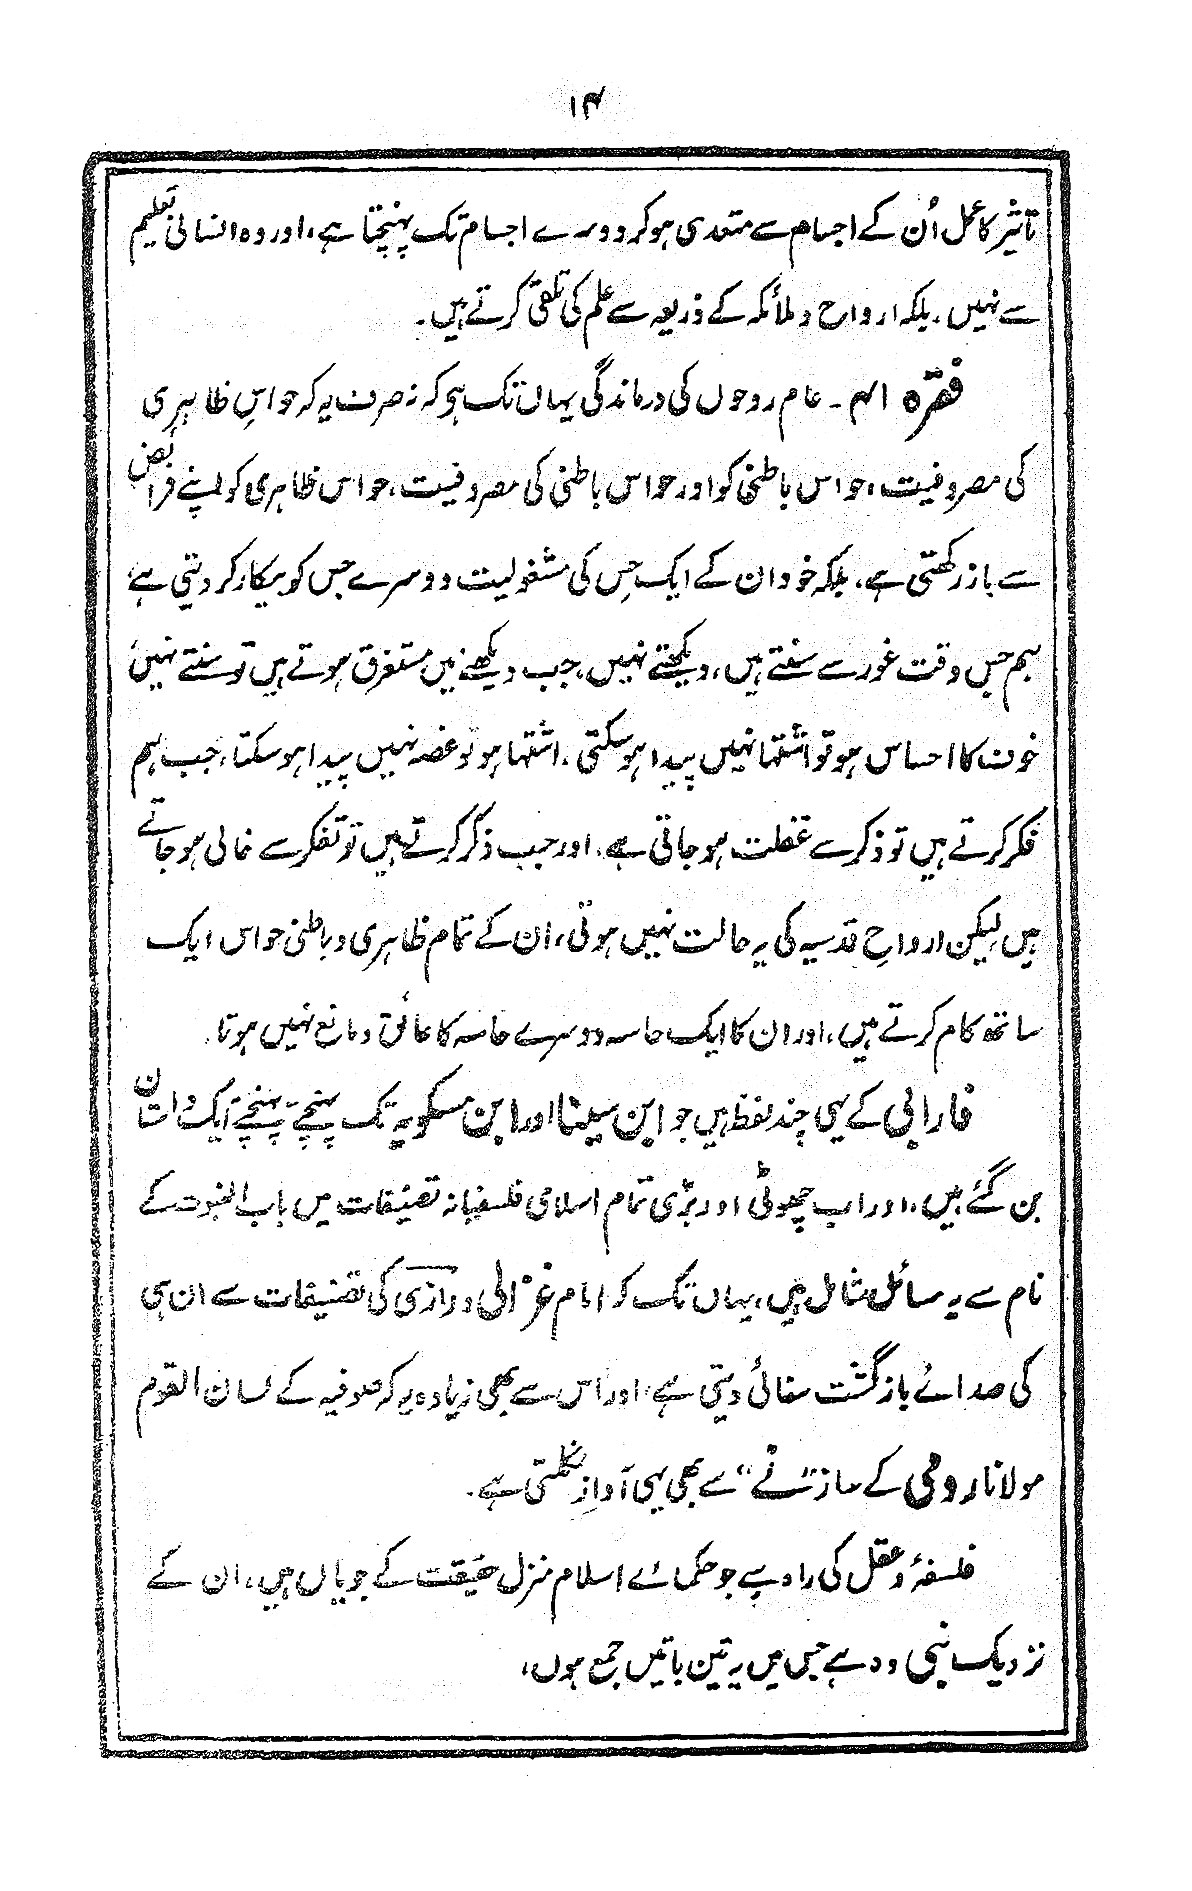 ۱۴
تاثیر کا عمل اُن کے اجسام سے متعدی ہو کر دوسرے اجسام تک پہنچتا ہے، اور وہ انسانی تعلیم
سے نہیں، بلکہ ارواح و ملائکہ کے ذریعہ سے علم کی تلقی کرتے ہیں۔
فقرہ ۴۱۔ عام روحوں کی درماندگی یہاں تک ہو کہ نہ صرف یہ کہ حواسِ ظاہری
کی مصروفیت، حواس باطنی کو اور حواس باطنی کی مصروفیت، حواس ظاہری کو اپنے فرائض
سے باز رکھتی ہے، بلکہ خود ان کے ایک حِس کی مشغولیت دوسرے حِس کو بیکار کر دیتی ہے،
ہم جس وقت غور سے سنتے ہیں، دیکھتے نہیں، جب دیکھنے میں مستغرق ہوتے ہیں تو سنتے نہیں،
خوف کا احساس ہو تو اشتہا نہیں پیدا ہو سکتی، اشتہا ہو تو غصہ نہیں پیدا ہو سکتا، جب ہم
فکر کرتے ہیں تو ذکر سے غفلت ہو جاتی ہے، اور جب ذکر کرتے ہیں تو تفکر سے خالی ہو جاتے
ہیں لیکن ارواحِ قدسیہ کی یہ حالت نہیں ہوتی، ان کے تمام ظاہری و باطنی حواس ایک
ساتھ کام کرتے ہیں، اور ان کا ایک حاسہ دوسرے حاسہ کا عائق و مانع نہیں ہوتا،
فارابی کے یہی چند لفظ ہیں جو ابن سینا اور ابن مسکویہ تک پہنچتے پہنچتے ایک داستان
بن گئے ہیں، اور اب چھوٹی اور بڑی تمام اسلامی فلسفیانہ تصنیفات میں باب النبوت کے
نام سے یہ مسائل شامل ہیں، یہاں تک کہ امام غزالی و رازی کی تصنیفات سے ان ہی
کی صدائے بازگشت سنائی دیتی ہے، اور اس سے بھی زیادہ یہ کہ صوفیہ کے لسان القوم
مولانا رومی کے ساز "نے" سے بھی یہی آواز نکلتی ہے۔
فلسفۂ و عقل کی راہ سے جو حکمائے اسلام منزل حقیقت کے جویاں ہیں، ان کے
نزدیک نبی وہ ہے جس میں یہ تین باتیں جمع ہوں،